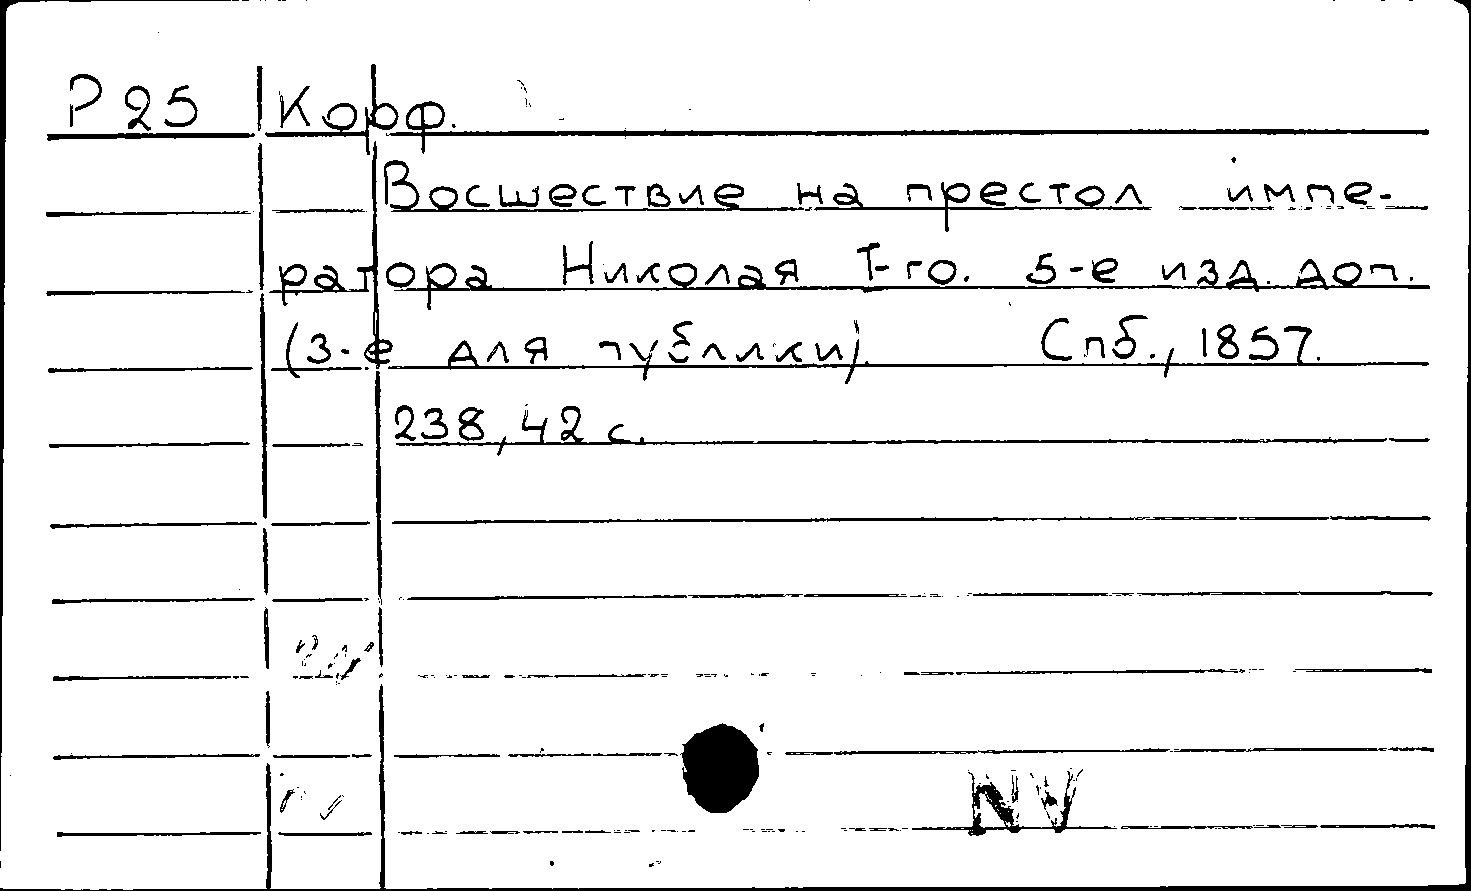 Р 25 Корф.
Восшествие на престол импе-
ратора Николая I-го. 5-е изд. доп.
(3-е для публики). Спб., 1857.
238, 42 с.
NV